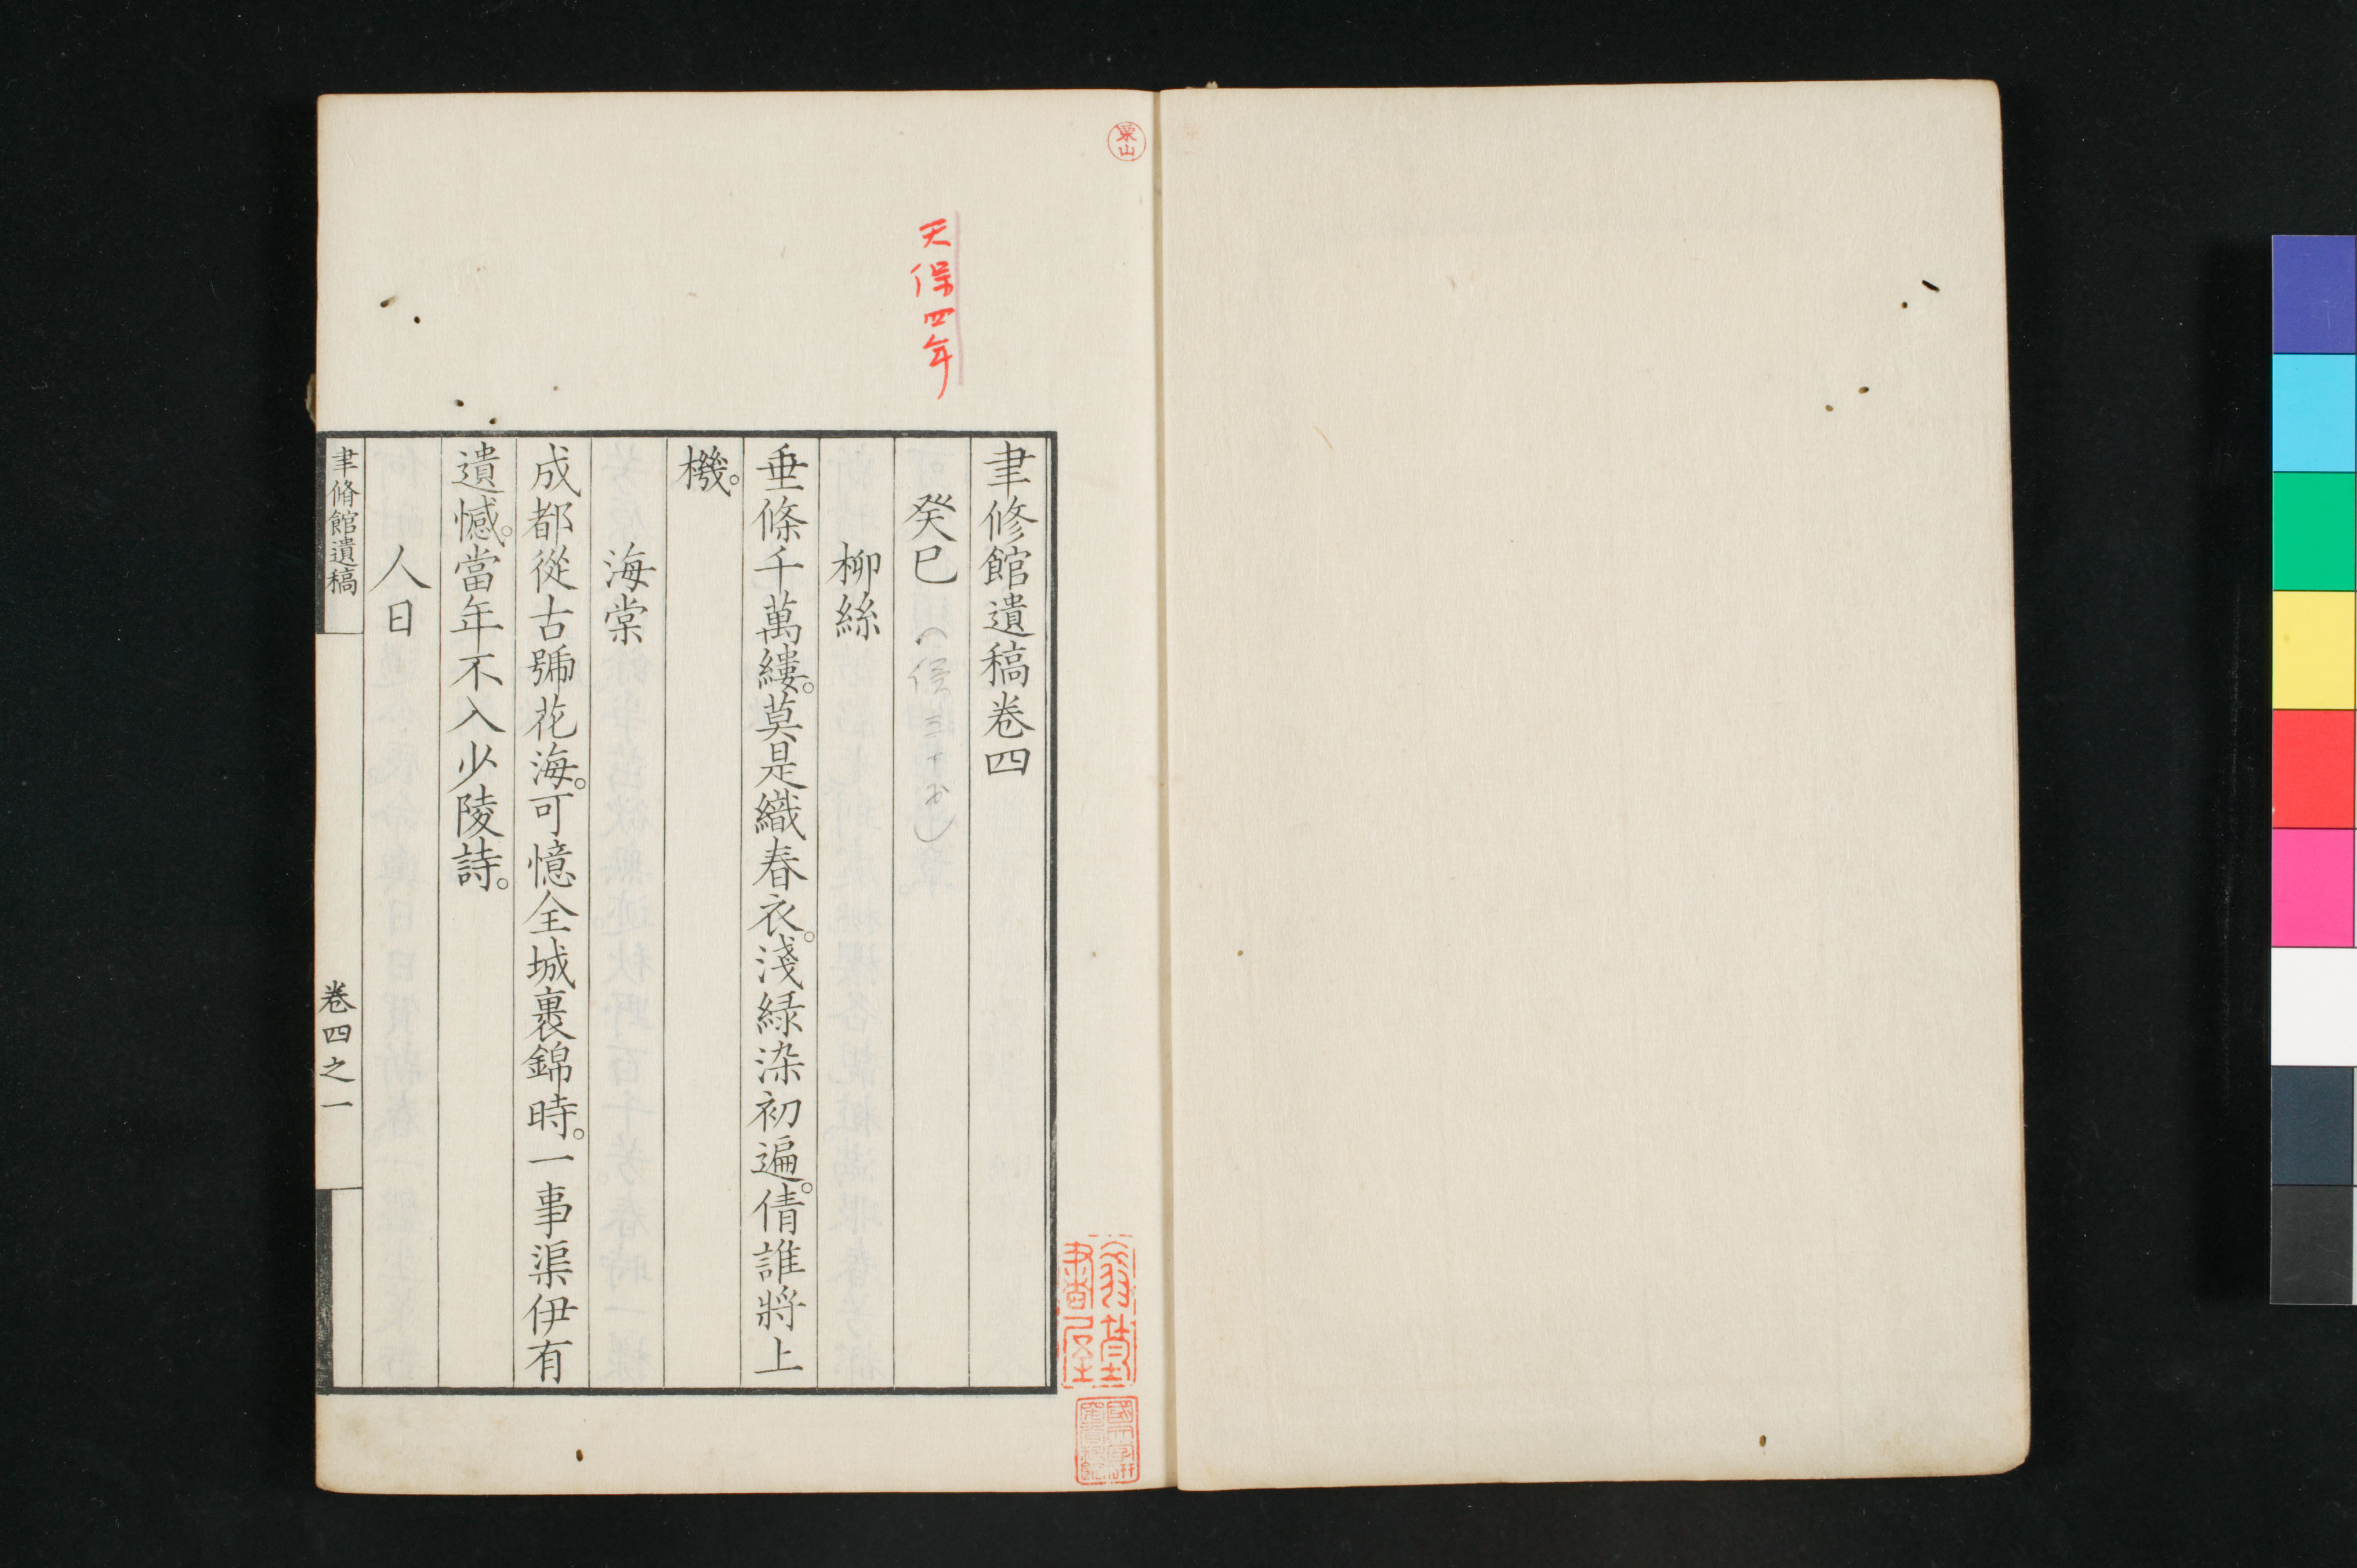 天保四年
聿修館遺稿卷四
癸巳
柳絲
垂條千萬縷。莫是織春衣。淺綠染初遍。倩誰將上
機。
海棠
成都從古號花海。可憶全城裹錦時。一事渠伊有
遺憾。當年不入少陵詩。
人日
聿脩館遺稿
卷四之一
栗山